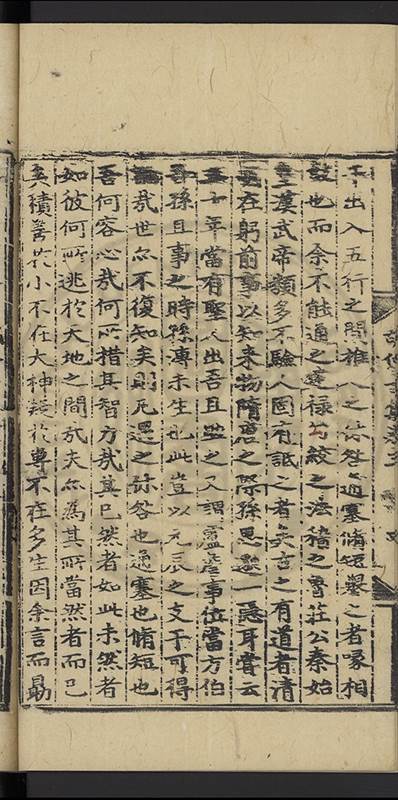 干出入五行之間推人之休咎通塞脩短舉之者喙相
也而余不能通之建祿勾絞之法稽之魯莊公秦始
皇漢武帝類多不驗人固有詆之者矣古之有道者清
在躬前事以知來物隋唐之際孫思邈一隱耳嘗云
五十年當有聖人出吾且助之又謂盧齊卿位當方伯
吾孫且事之時孫溥未生也此豈以元辰之支干可得
哉世亦不復知矣則凡運之休咎也通塞也脩短也
吾何容心哉何所措其智方哉其已然者如此未然者
如彼何所逃於天地之間哉夫亦為其所當然者而已
矣積善於小不在大神疑於專不在多生因余言而勗